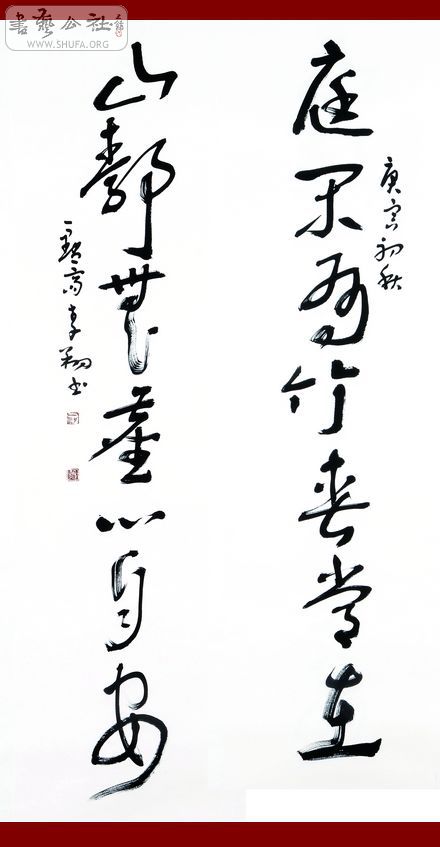 書藝公社
WWW.SHUFA.ORG
庭閑有竹春常在
庚寅初秋
山靜無塵心自安
李翔书